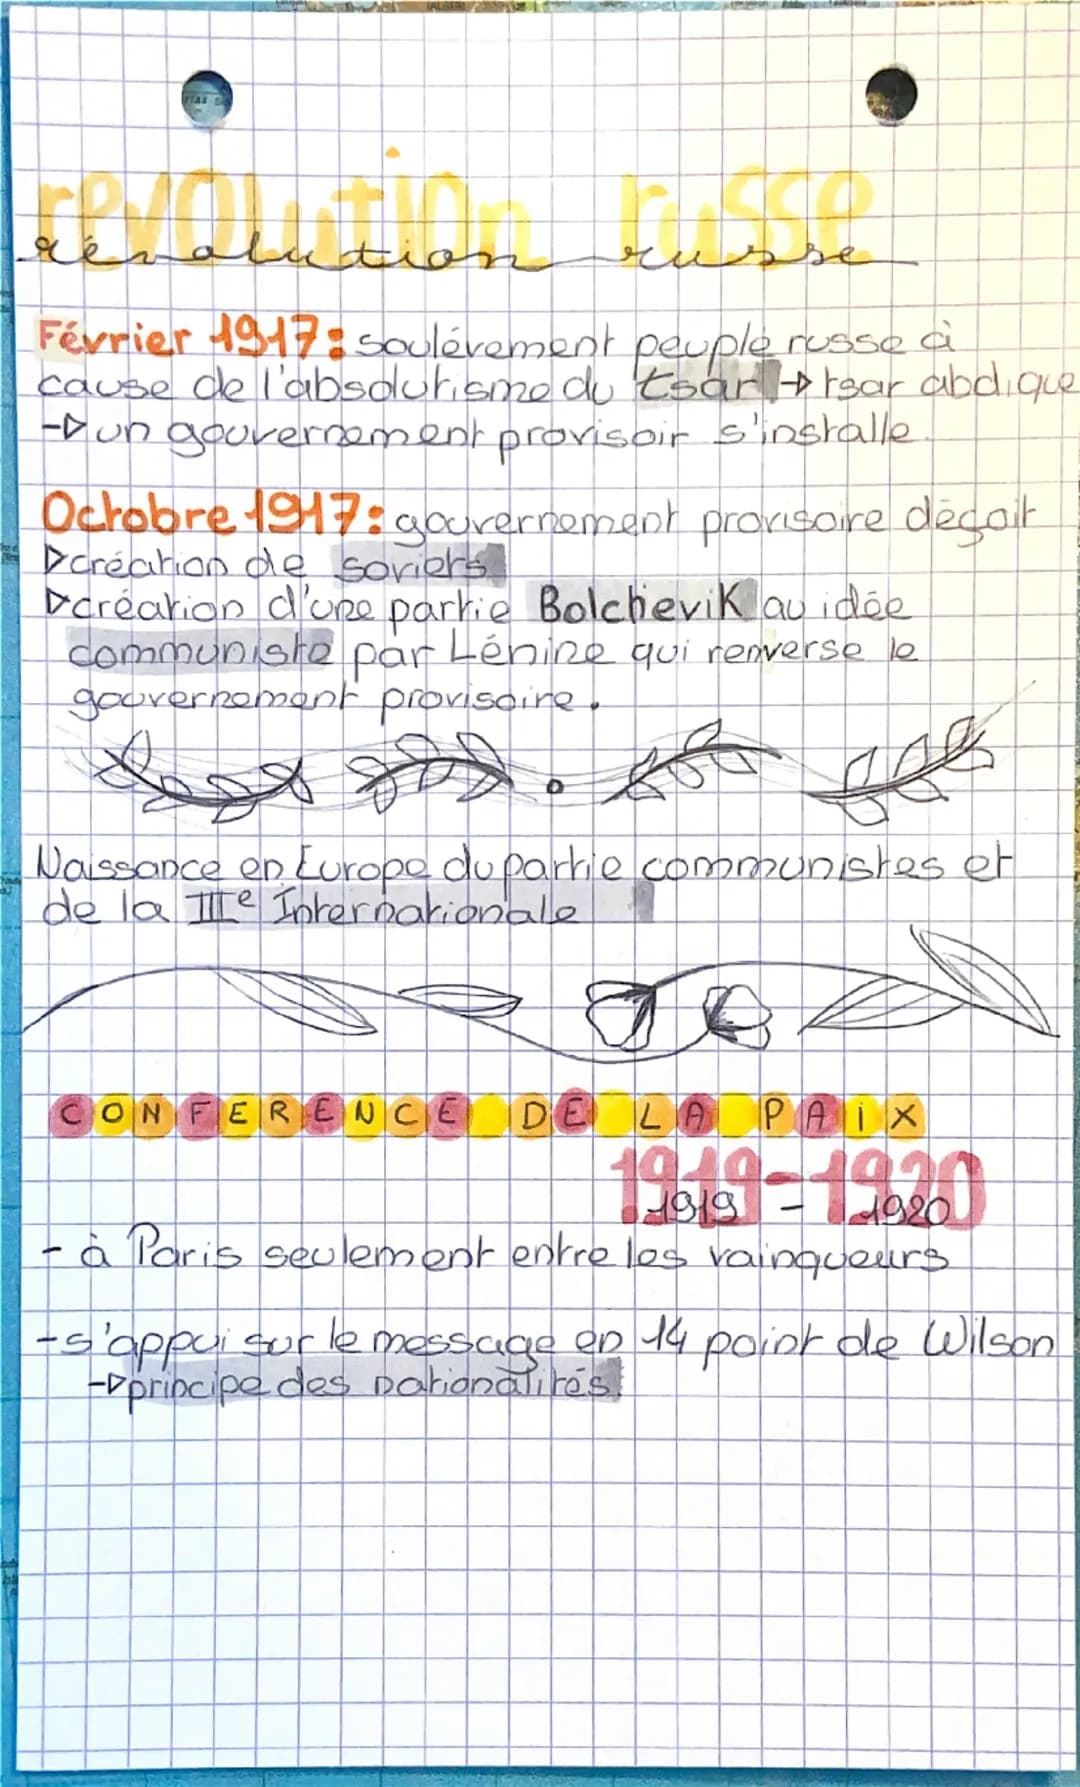 revolution russe
révolution russe
Février 1917: soulévement peuple russe à
cause de l'absolutisme du tsar → tsar abdique
→ un gouvernement provisoir s'installe.
Octobre 1917: gouvernement provisoire déçoit
▷création de soviets
▷création d'une partie Bolchevik au idée
communiste par Lénine qui renverse le
gouvernement provisoire.
Naissance en Europe du partie communistes et
de la IIIe Internationale
CONFERENCE DE LA PAiX
1919-1920
1919 - 1920
- à Paris seulement entre les vainqueurs
-s'appui sur le message en 14 point de Wilson
→principe des nationalités